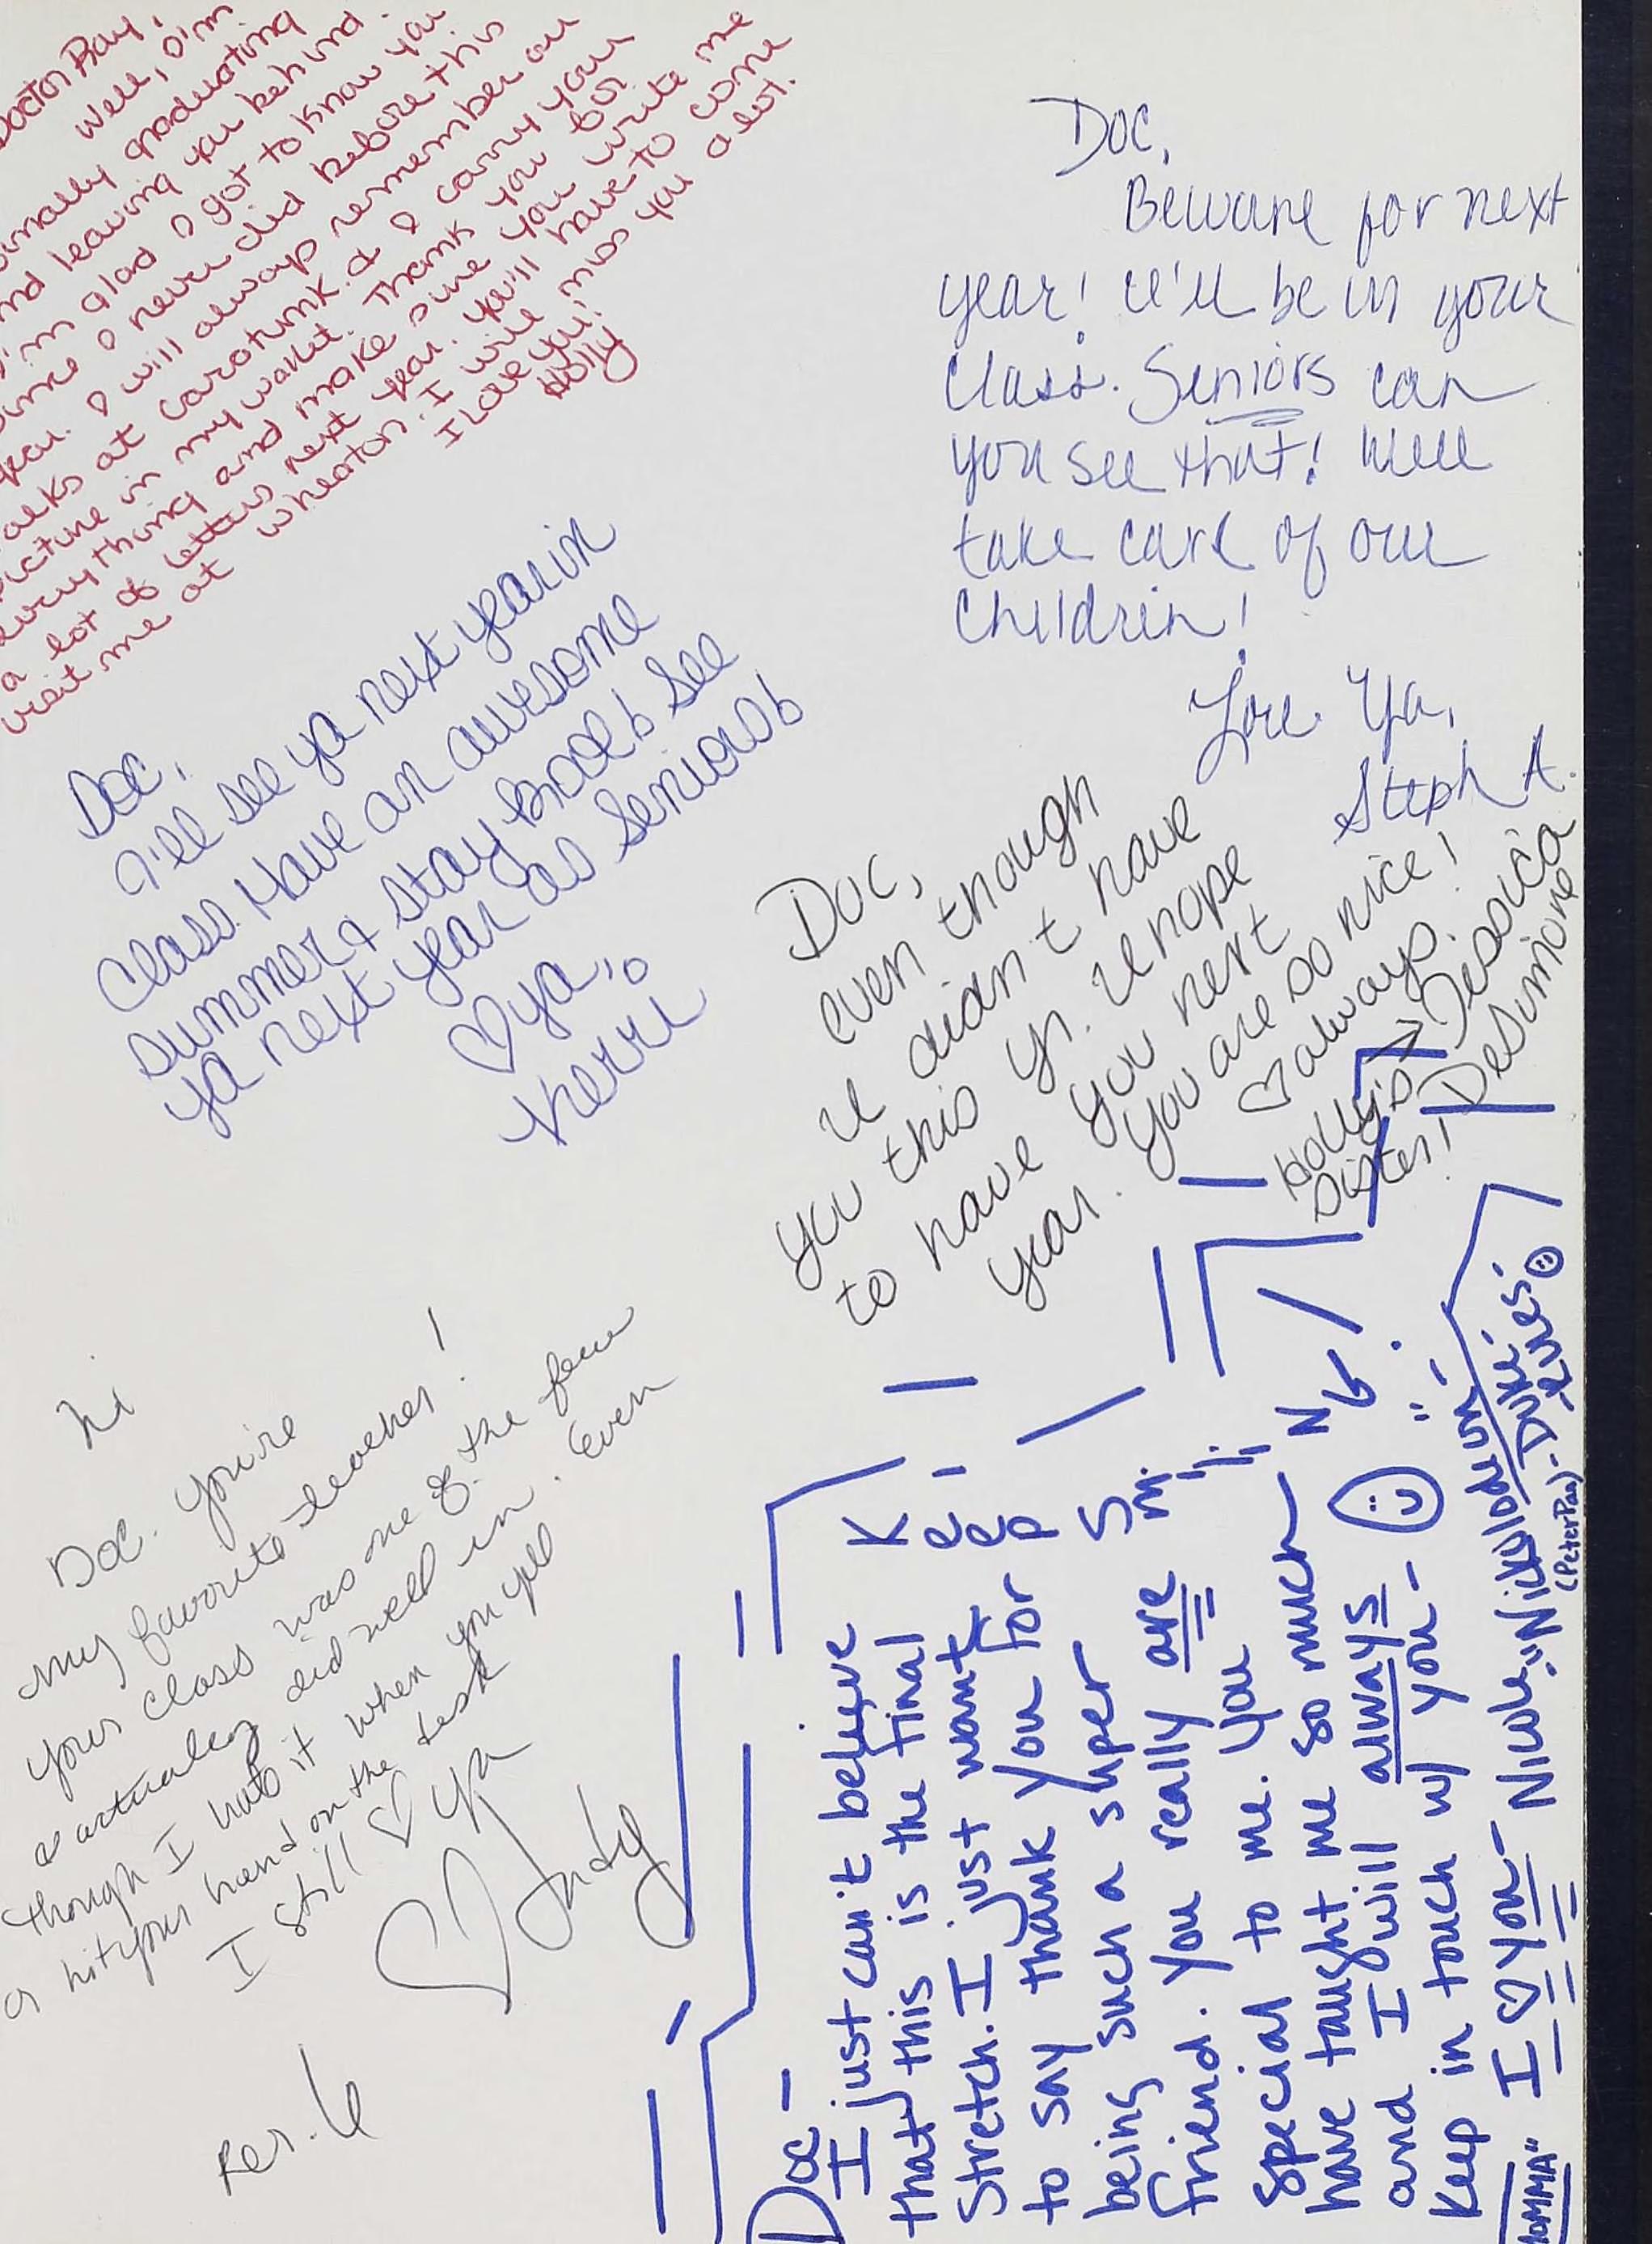 Doctor Ray,
Well, I'm
finally graduating
and leaving you behind.
I'm glad I got to know you
since I never did before this
year. I will always remember our
talks at Caratunk. & I carry your
picture in my wallet. Thank you for
everything and make sure you write me
a lot of letters next year. You'll have to come
visit me at Wheaton. I will miss you a lot.
I Love you!
Holly
Doc,
I'll see ya next year in
class. Have an awesome
summer & stay kool! See
ya next year as Seniors!
♡ ya,
Kerri
Doc,
Beware for next
year! I'll be in your
class. Seniors can
you see that! Well
take care of our
children!
Love Ya,
Steph A.
Doc,
even though
I didn't have
you this yr. I hope
to have you next
year. You are so nice!
♡ always.
Jessica
DeSimone
Holly's
Sister!
hi
Doc. You're
my favorite teacher!
Your class was one of the few
I actually did well in. Even
though I hate it when you yell
a hit your hand on the desk
I still ♡ ya
♡ Judy
Per. 6
Doc -
I just can't believe
that this is the final
stretch. I just want
to say thank you for
being such a super
friend. You really are
special to me. You
have taught me so much
and I will always
keep in touch w/ you -
I ♡ You - Nicole "Nickulodeum" - Duke -
(Peter Pan)
Keep
Smiling